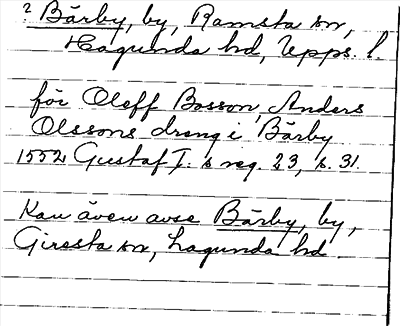 ? Bärby, by, Ramsta sn,
Hagunda hd, Upps. l.
för Oleff Bosson, Anders
Olssons dreng i Bärby
1552 Gustaf I.s reg. 23, s. 31.
Kan även avse Bärby, by,
Giresta sn, Lagunda hd.